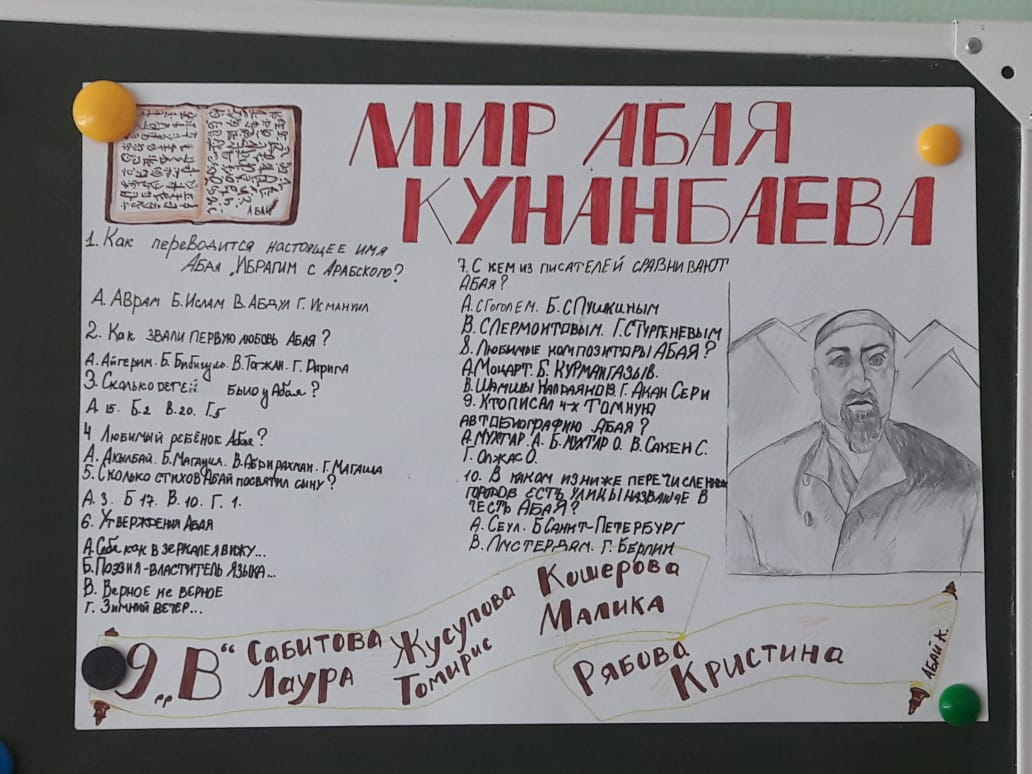 МИР АБАЯ
КУНАНБАЕВА
АБАЙ
1. Как переводится настоящее имя
Абая „Ибрагим с Арабского?
А. Аврам Б. Ислам В. Абдул Г. Исмаиил
2. Как звали первую любовь Абая?
А. Айгерим. Б. Бибигуль. В. Тогжан. Г. Дарига
3. Сколько детей было у Абая?
А 15. Б.2 В.20. Г.5
4 Любимый ребёнок Абая?
А. Акылбай. Б. Магауия. В. Абдирахман. Г. Магаша
5. Сколько стихов Абай посвятил сыну?
А.3. Б 17. В. 10. Г. 1.
6. Утверждения Абая
А. Себя как в зеркале я вижу...
Б. Поэзия-властитель языка...
В. Верное не верное
Г. Зимний вечер...
7. С кем из писателей сравнивают
Абая?
А. с Гоголем. Б. С Пушкиным
В. С Лермонтовым. Г. С Тургеневым
8. Любимые композиторы Абая?
А. Моцарт. Б. Курмангазы В.
В. Шамшы Г. Акан Сери
9. Кто писал 4-х томную
автобиографию Абая?
А. Мухтар. А. Б. Мухтар О. В. Сакен С.
Г. Олжас О.
10. В каком из ниже перечисленных
городов есть улицы название в
честь Абая?
А. Сеул. Б Санкт-Петербург
В. Амстердам. Г. Берлин
9 „В“ Сабитова Лаура
Жусупова Томирис
Кошерова Малика
Рябова Кристина
АБАЙ К.